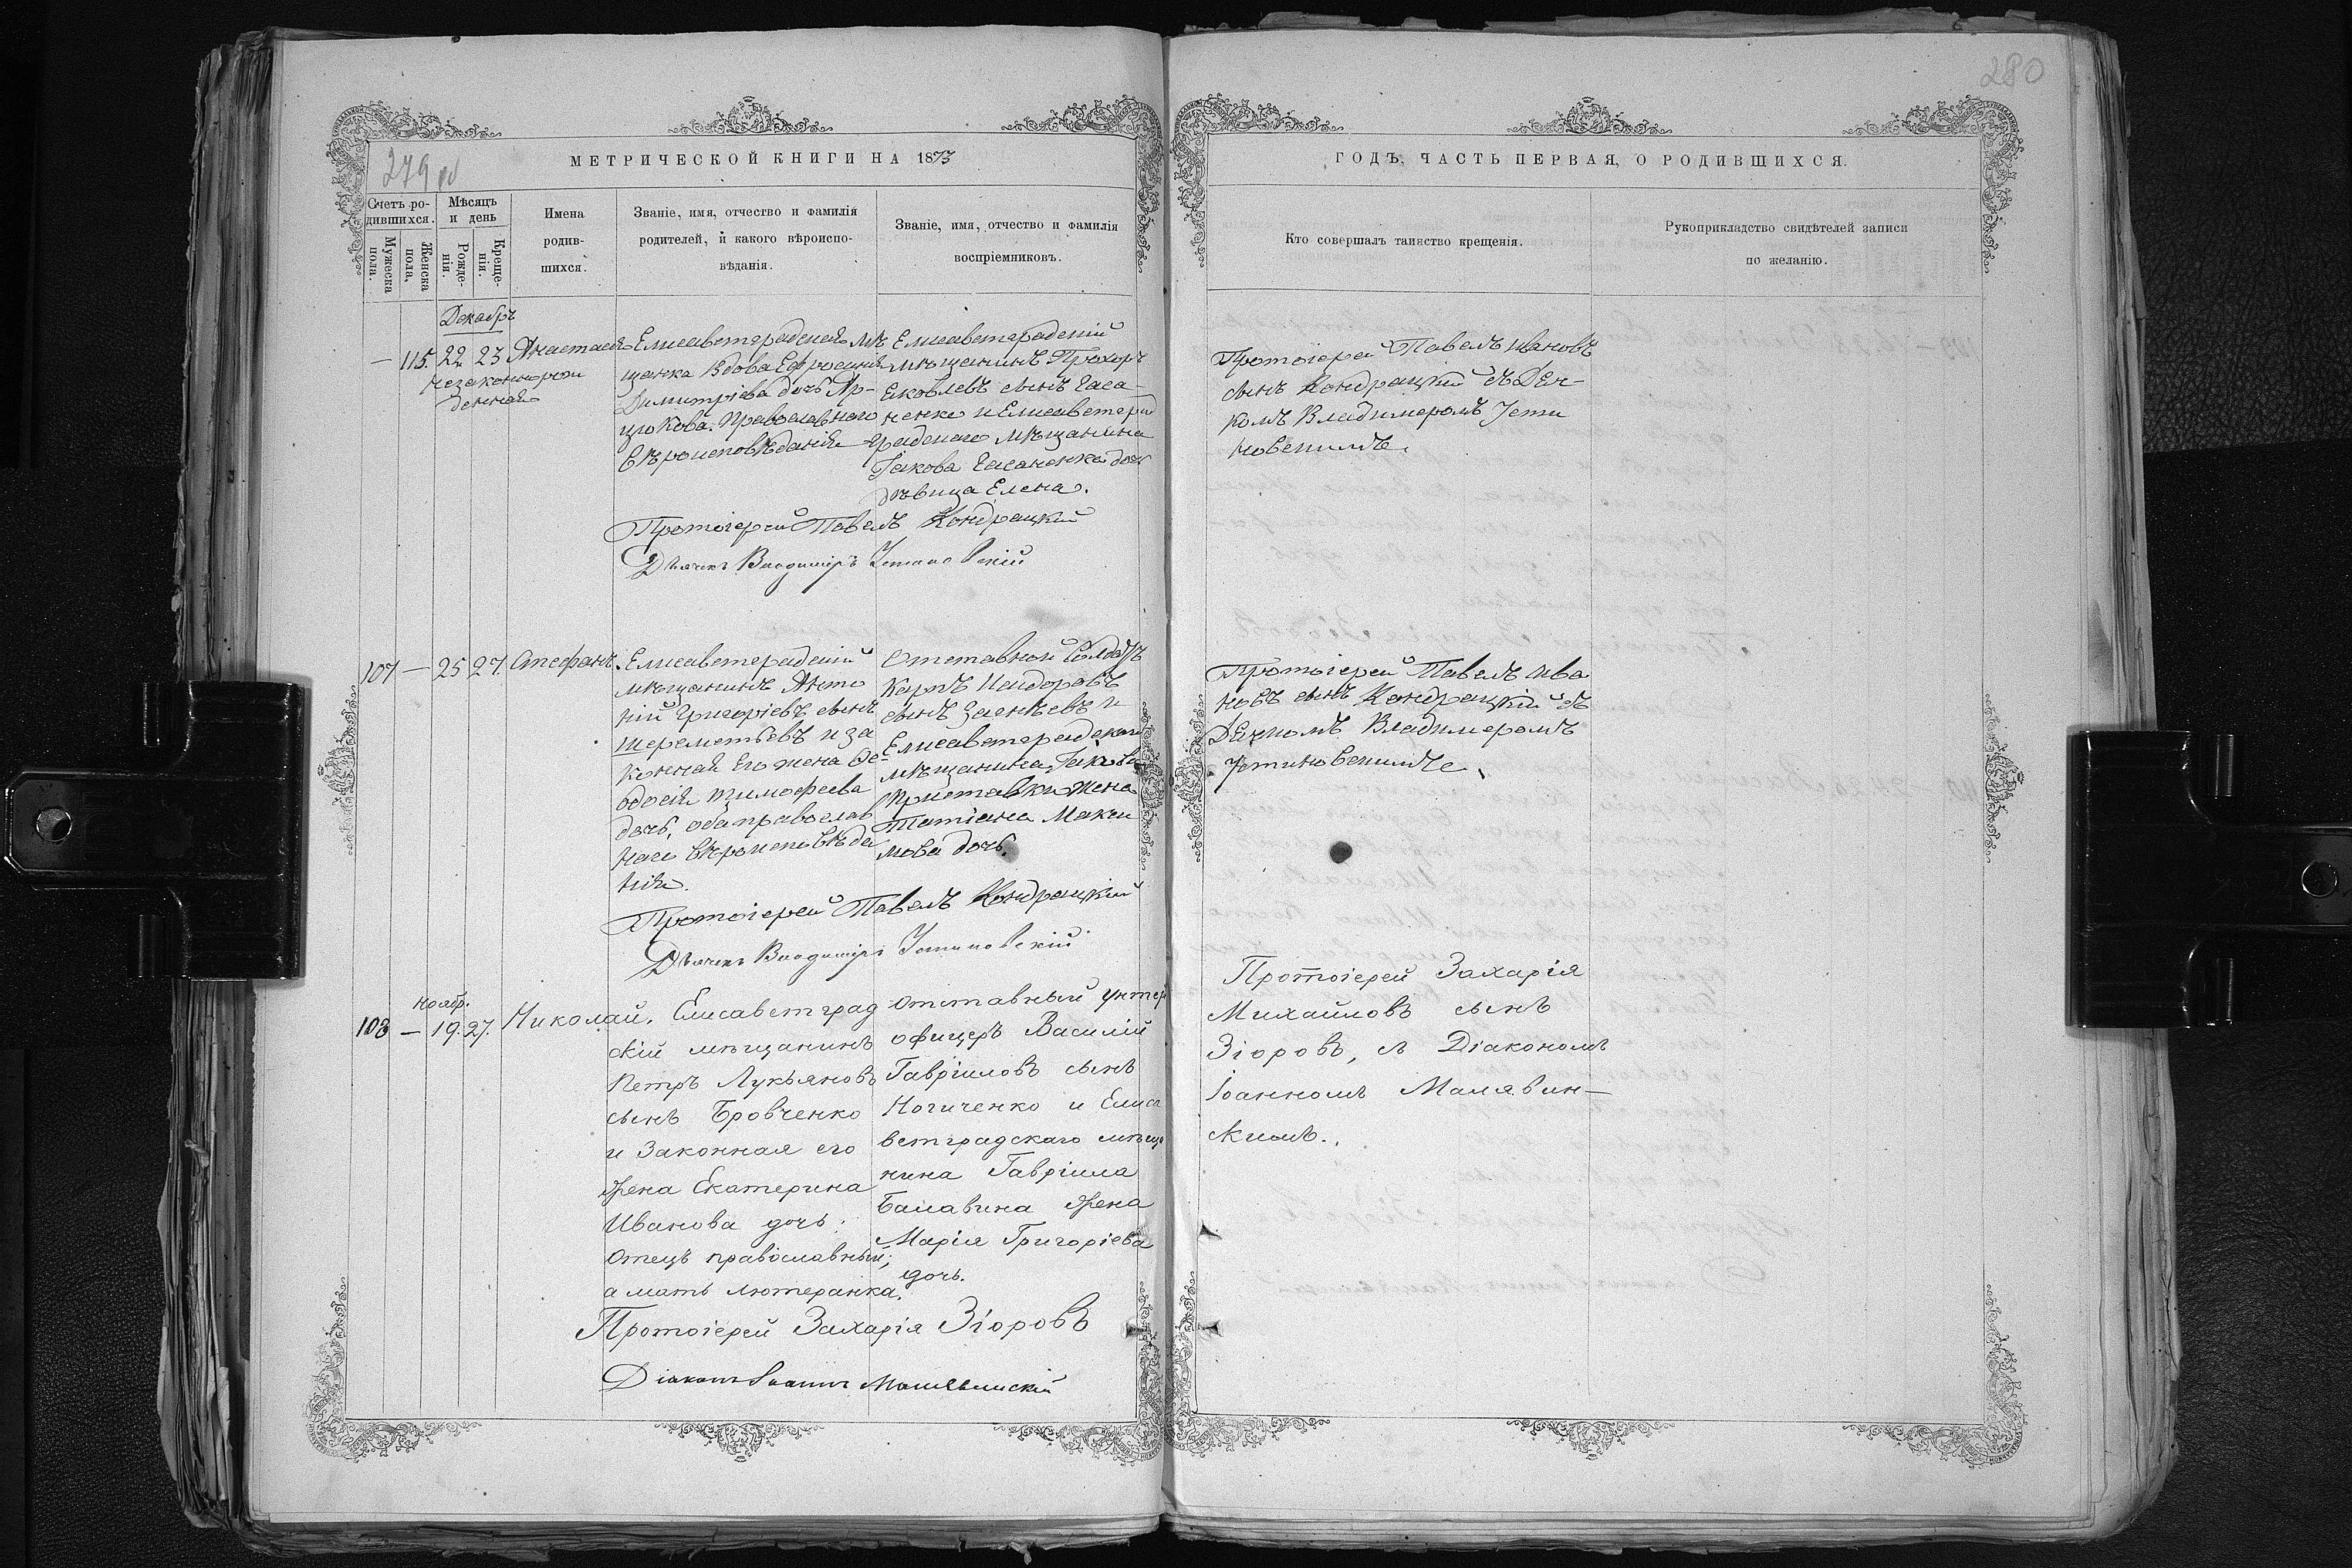 279 об
МЕТРИЧЕСКОЙ КНИГИ НА 1873
Счетъ ро-
дившихся.
Мужеска
пола.
Женска
пола.
Мѣсяцъ
и день
Рожде-
нія.
Креще-
нія.
Имена
родив-
шихся.
Званіе, имя, отчество и фамилія
родителей, и какого вѣроиспо-
вѣданія.
Званіе, имя, отчество и фамилія
воспріемниковъ.
Декабрь
— 115. 22 23 Анастасія
незаконнорож
денная
Елисаветградская мѣ
щанка вдова Ефросинія
Димитріева дочь Ар-
цюкова. Православнаго
вѣроисповѣданія
Елисаветградскій
мѣщанинъ Прохоръ
Яковлевъ сынъ Гаса-
ненко и Елисавет
градскаго мѣщанина
Іакова Гасаненка дочь
дѣвица Елена.
Протоіерей Павелъ Кондрацкій
Дьячекъ Владиміръ Устиновскій
107 — 25 27 Стефанъ.
Елисаветградскій
мѣщанинъ Анто
ній Григоріевъ сынъ
Шереметьевъ и за
конная его жена Ѳе
одосія Тимофеева
дочь, оба православ
наго вѣроисповѣда
нія.
Отставной Солдатъ
Карпъ Исидоровъ
сынъ Заенчевъ и
Елисаветградскаго
мѣщанина Іакова
Приставки жена
Татіана Макси
мова дочь.
Протоіерей Павелъ Кондрацкій
Дьячекъ Владиміръ Устиновскій
Ноябр.
108 — 19. 27. Николай.
Елисаветград
скій мѣщанинъ
Петръ Лукьяновъ
сынъ Бровченко
и Законная его
жена Екатерина
Иванова дочь:
отецъ православный;
а мать лютеранка.
Отставный унтеръ
офицеръ Василій
Гавріиловъ сынъ
Ногиченко и Елиса
ветградскаго мѣща
нина Гавріила
Балавина жена
Марія Григоріева
дочь.
Протоіерей Захарія Зіоровъ
Діаконъ Іоаннъ Малявинскій
280
ГОДЪ, ЧАСТЬ ПЕРВАЯ, О РОДИВШИХСЯ.
Кто совершалъ таинство крещенія.
Рукоприкладство свидѣтелей записи
по желанію.
Протоіерей Павелъ Ивановъ
сынъ Кондрацкій съ Дяч-
комъ Владимеромъ Усти
новскимъ.
Протоіерей Павелъ Ива
новъ сынъ Кондрацкій съ
Дячкомъ Владимеромъ
Устиновскимъ.
Протоіерей Захарія
Михайловъ сынъ
Зіоровъ, съ Діакономъ
Іоанномъ Малявин-
скимъ.